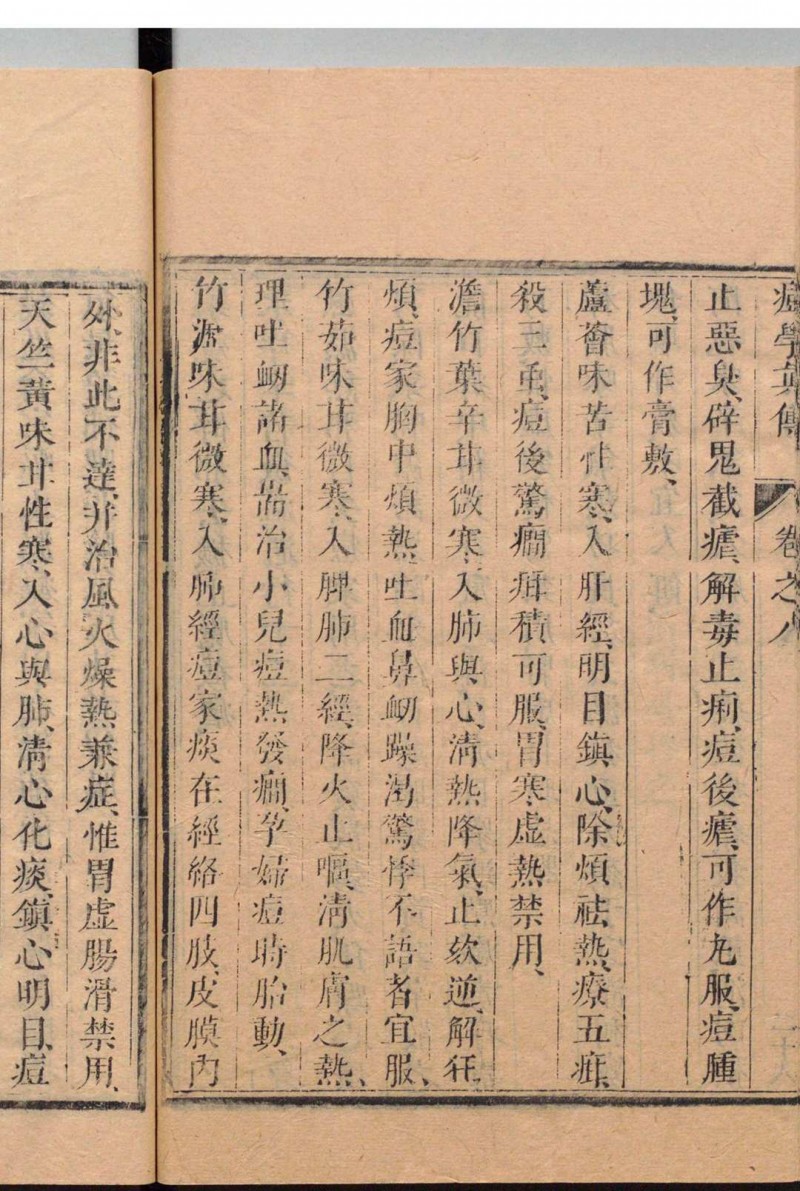 痘學眞傳 卷之八
止惡臭、辟鬼截瘧、解毒止痢、痘後瘧、可作丸服、痘腫
塊、可作膏敷、
蘆薈味苦性寒、入肝經、明目鎮心、除煩祛熱、療五疳、
殺三虫、痘後驚癇疳積可服、胃寒虛熱禁用、
澹竹葉辛甘微寒、入肺與心、清熱降氣、止欬逆、解狂
煩、痘家胸中煩熱、吐血鼻衂、躁渴驚悸不語者宜服、
竹茹味甘微寒、入脾肺二經、降火止嘔、清肌膚之熱、
理吐衂諸血、耑治小兒痘熱發癇、孕婦痘時胎動、
竹瀝味甘微寒、入肺經、痘家痰在經絡四肢、皮膜內
外、非此不達、并治風火燥熱兼症、惟胃虛腸滑禁用、
天竺黃味甘性寒、入心與肺、清心化痰、鎮心明目、痘